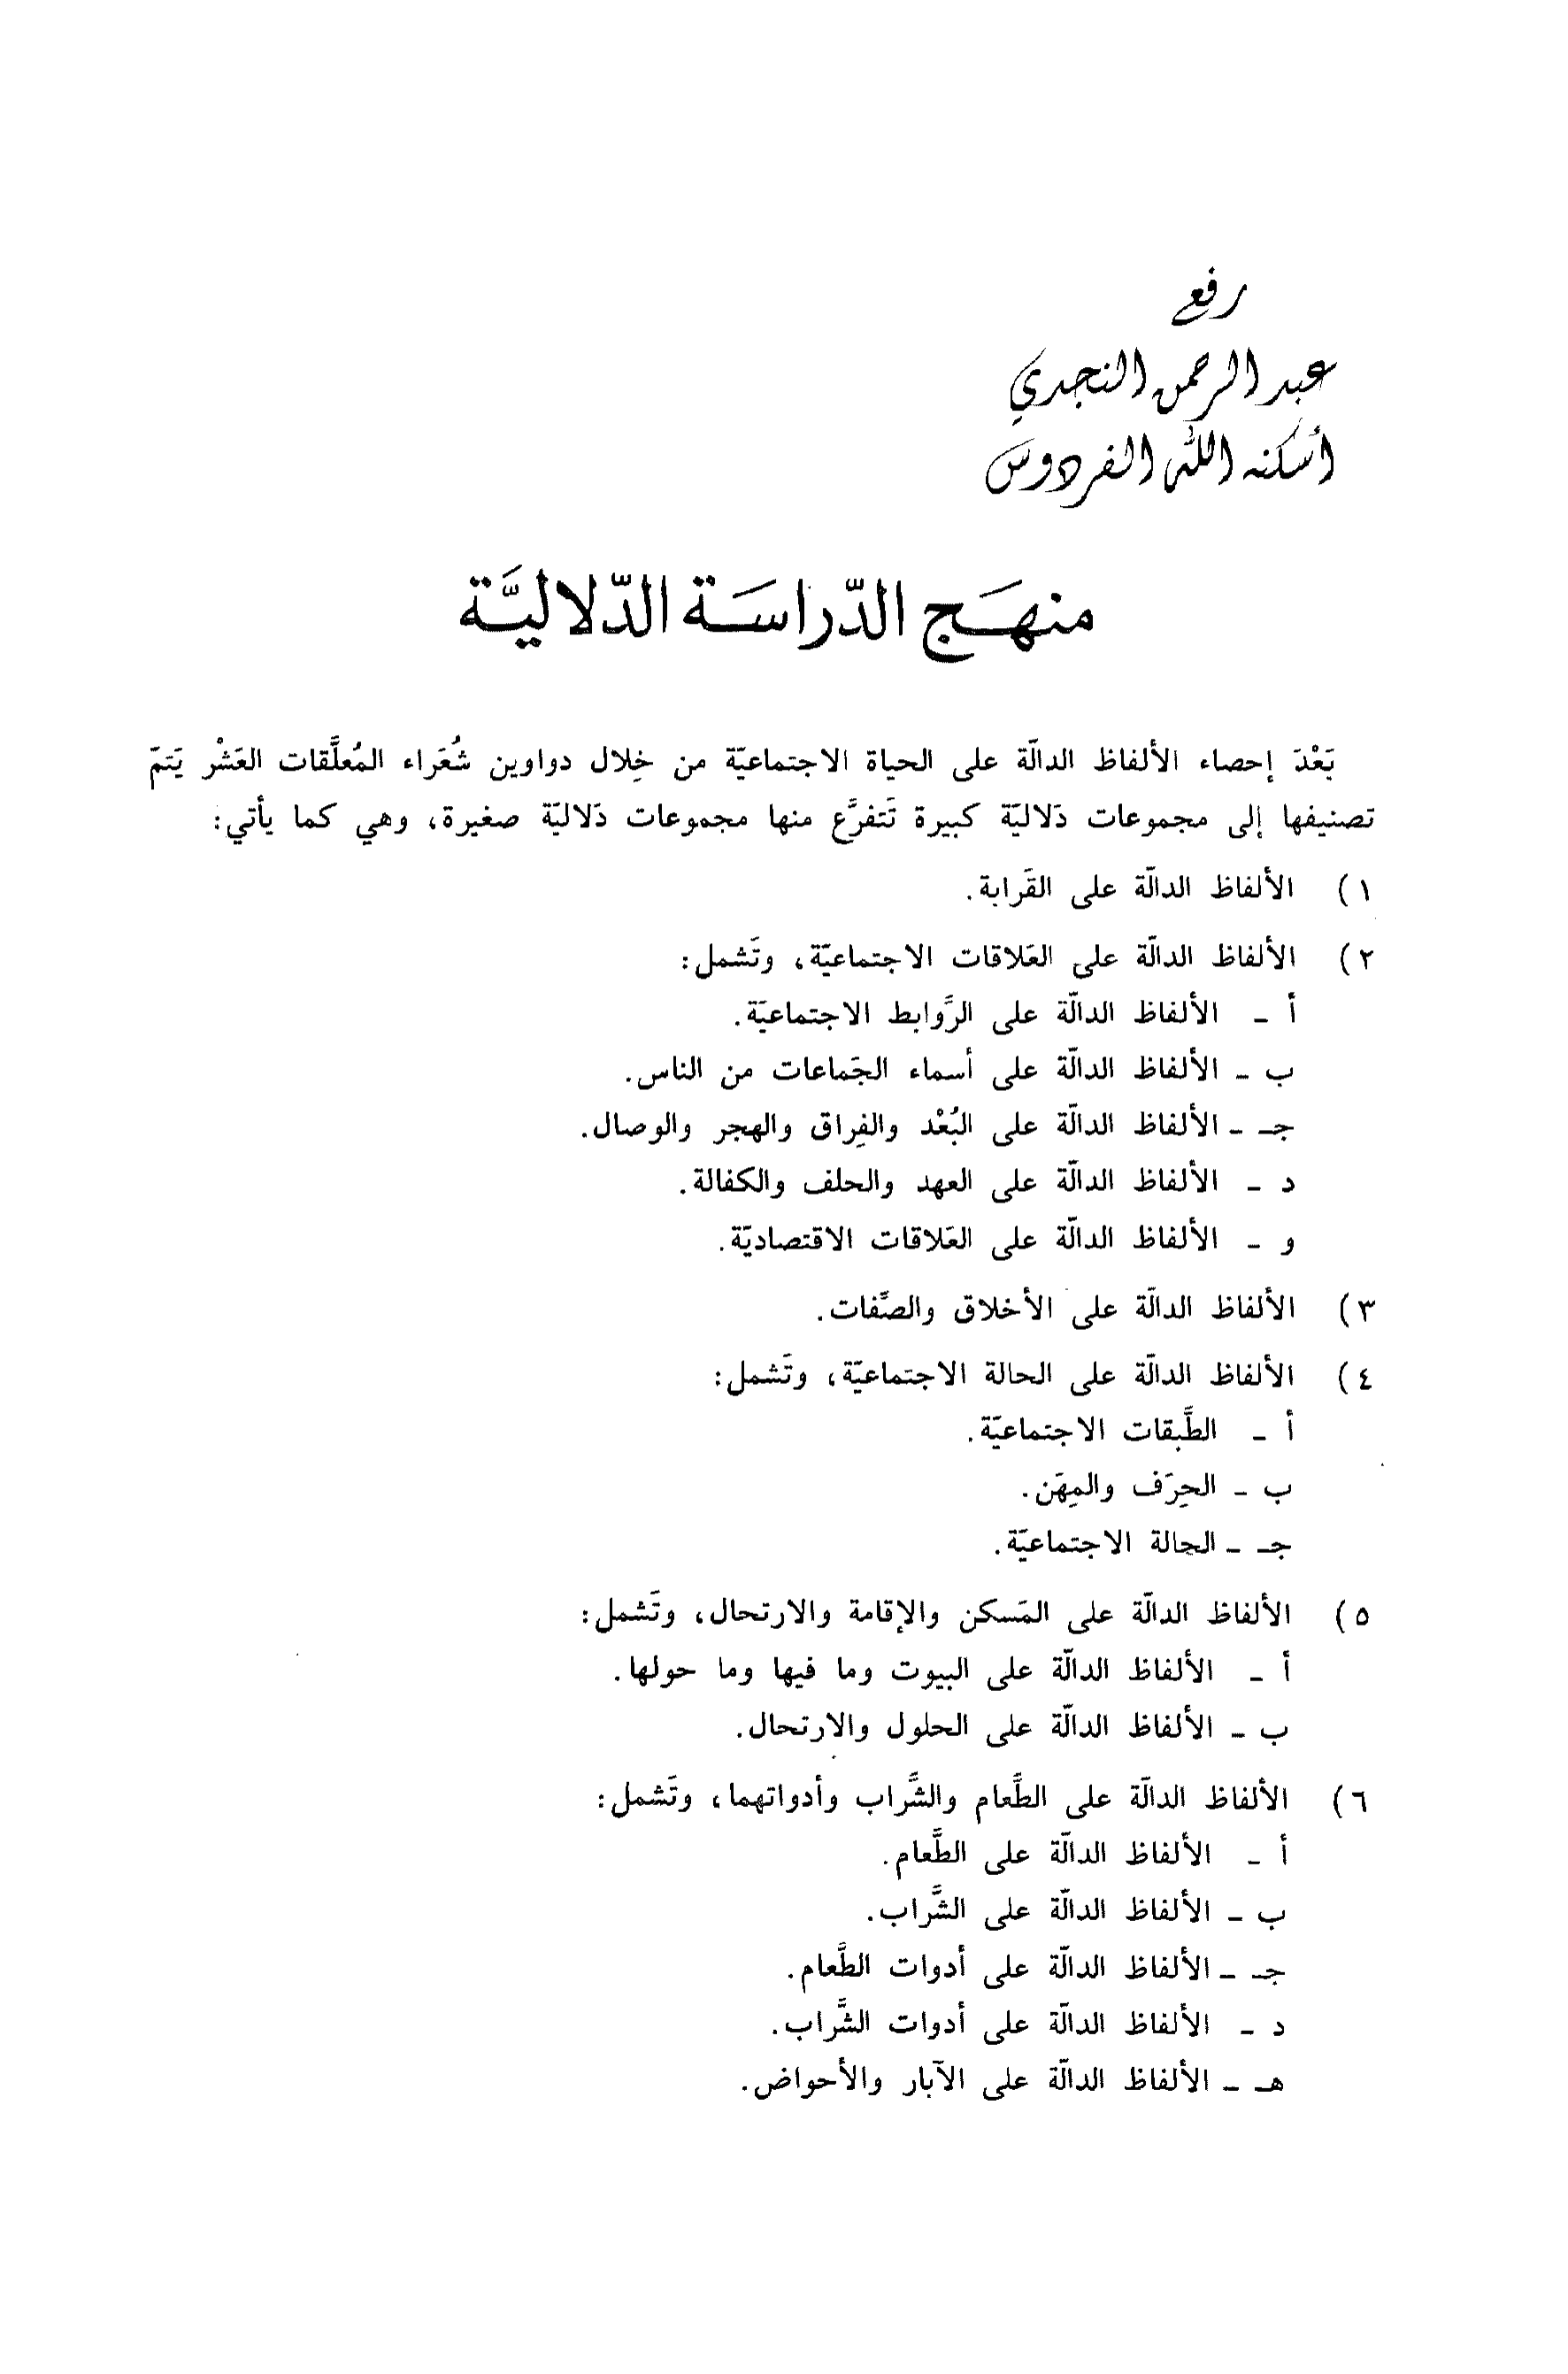 رفع
عبد الرحمن النجدي
أسكنه الله الفردوس
منهَج الدّراسَة الدّلاليَّة
بَعْدَ إحصاء الألفاظ الدالّة على الحياة الاجتماعيّة من خِلال دواوين شُعَراء المُعلَّقات العَشْر يَتمّ
تصنيفها إلى مجموعات دَلاليّة كبيرة تَتفرَّع منها مجموعات دَلاليّة صغيرة، وهي كما يأتي:
١) الألفاظ الدالّة على القَرابة.
٢) الألفاظ الدالّة على العَلاقات الاجتماعيّة، وتَشمل:
أ - الألفاظ الدالّة على الرَّوابط الاجتماعيّة.
ب - الألفاظ الدالّة على أسماء الجَماعات من الناس.
جـ - الألفاظ الدالّة على البُعْد والفِراق والهجر والوصال.
د - الألفاظ الدالّة على العهد والحلف والكفالة.
و - الألفاظ الدالّة على العَلاقات الاقتصاديّة.
٣) الألفاظ الدالّة على الأخلاق والصِّفات.
٤) الألفاظ الدالّة على الحالة الاجتماعيّة، وتَشمل:
أ - الطَّبقات الاجتماعيّة.
ب - الحِرَف والمِهَن.
جـ - الحالة الاجتماعيّة.
٥) الألفاظ الدالّة على المَسكن والإقامة والارتحال، وتَشمل:
أ - الألفاظ الدالّة على البيوت وما فيها وما حولها.
ب - الألفاظ الدالّة على الحلول والارتحال.
٦) الألفاظ الدالّة على الطَّعام والشَّراب وأدواتهما، وتَشمل:
أ - الألفاظ الدالّة على الطَّعام.
ب - الألفاظ الدالّة على الشَّراب.
جـ - الألفاظ الدالّة على أدوات الطَّعام.
د - الألفاظ الدالّة على أدوات الشَّراب.
هـ - الألفاظ الدالّة على الآبار والأحواض.